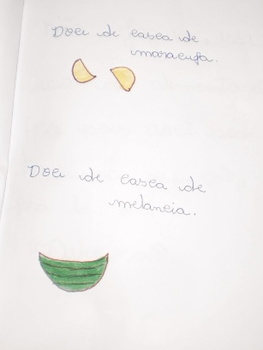 Doce de casca de
maracujá.
Doce de casca de
melancia.